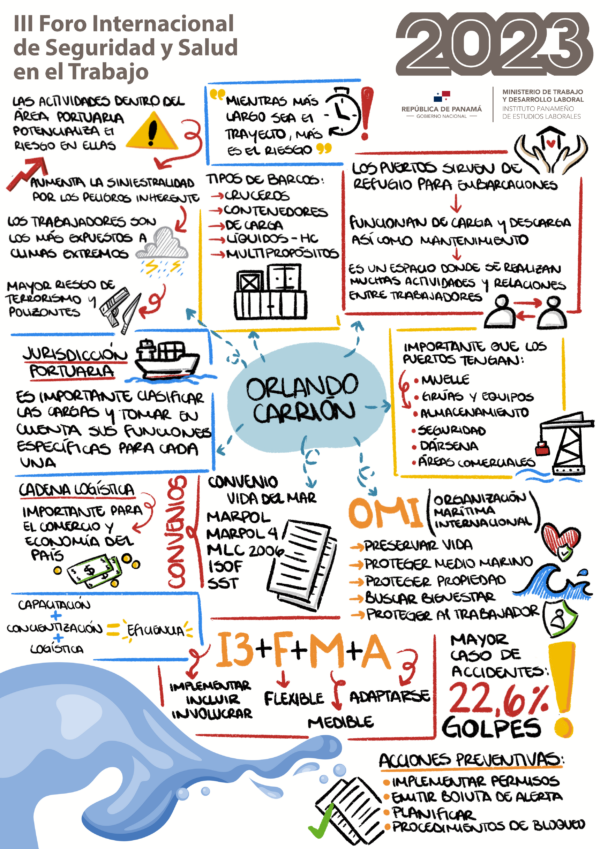 III Foro Internacional
de Seguridad y Salud
en el Trabajo
2023
REPÚBLICA DE PANAMÁ
— GOBIERNO NACIONAL —
MINISTERIO DE TRABAJO
Y DESARROLLO LABORAL
INSTITUTO PANAMEÑO
DE ESTUDIOS LABORALES
LAS ACTIVIDADES DENTRO DEL
ÁREA PORTUARIA
POTENCIALIZA El
RIESGO EN ELLAS
AUMENTA LA SINIESTRALIDAD
POR LOS PELIGROS INHERENTE
LOS TRABAJADORES SON
LOS MÁS EXPUESTOS A
CLIMAS EXTREMOS
MAYOR RIESGO DE
TERRORISMO Y
POLIZONTES
"MIENTRAS MÁS
LARGO SEA El
TRAYECTO, MÁS
ES El RIESGO"
!
TIPOS DE BARCOS:
→CRUCEROS
→CONTENEDORES
→DE CARGA
→LÍQUIDOS - HC
→MULTIPROPÓSITOS
LOS PUERTOS SIRVEN DE
REFUGIO PARA EMBARCACIONES
FUNCIONAN DE CARGA Y DESCARGA
ASÍ COMO MANTENIMIENTO
ES UN ESPACIO DONDE SE REALIZAN
MUCHAS ACTIVIDADES Y RELACIONES
ENTRE TRABAJADORES
JURISDICCIÓN
PORTUARIA
ES IMPORTANTE CLASIFICAR
LAS CARGAS Y TOMAR EN
CUENTA SUS FUNCIONES
ESPECÍFICAS PARA CADA
UNA
ORLANDO
CARRIÓN
IMPORTANTE QUE LOS
PUERTOS TENGAN:
• MUELLE
• GRÚAS Y EQUIPOS
• ALMACENAMIENTO
• SEGURIDAD
• DÁRSENA
• ÁREAS COMERCIALES
CADENA LOGÍSTICA
IMPORTANTE PARA
EL COMERCIO Y
ECONOMÍA DEL
PAÍS
CONVENIOS
CONVENIO
VIDA DEL MAR
MARPOL
MARPOL 4
MLC 2006
ISOF
SST
OMI (ORGANIZACIÓN
MARÍTIMA
INTERNACIONAL)
→PRESERVAR VIDA
→PROTEGER MEDIO MARINO
→PROTEGER PROPIEDAD
→BUSCAR BIENESTAR
→PROTEGER Al TRABAJADOR
CAPACITACIÓN
+
CONCIENTIZACIÓN = EFICIENCIA
+
LOGÍSTICA
I3+F+M+A
IMPLEMENTAR
INCLUIR
INVOLUCRAR
FLEXIBLE
MEDIBLE
ADAPTARSE
MAYOR
CASO DE
ACCIDENTES:
22,6%
GOLPES
!
ACCIONES PREVENTIVAS:
• IMPLEMENTAR PERMISOS
• EMITIR BOLUTA DE ALERTA
• PLANIFICAR
• PROCEDIMIENTOS DE BLOQUEO